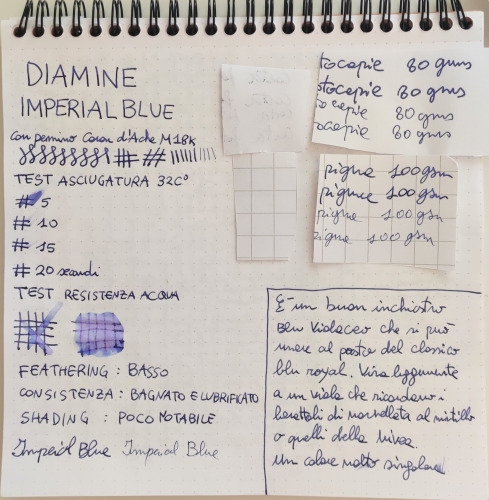 DIAMINE
IMPERIAL BLUE
con pennino Caran d'Ache M 18k
TEST ASCIUGATURA 32C°
# 5
# 10
# 15
# 20 secondi
TEST RESISTENZA ACQUA
FEATHERING : BASSO
CONSISTENZA : BAGNATO E LUBRIFICATO
SHADING : POCO NOTABILE
Imperial Blue Imperial Blue
tocopie 80 gms
stocopie 80 gms
tocopie 80 gms
ocopie 80 gms
pigna 100gsm
pigna 100gsm
pigna 100gsm
igna 100gsm
È un buon inchiostro
Blu Violaceo che si può
usare al posto del classico
blu royal. Vira leggermente
a un viola che ricordano i
barattoli di marmellata al mirtillo
o quelli della
un colore molto singolare